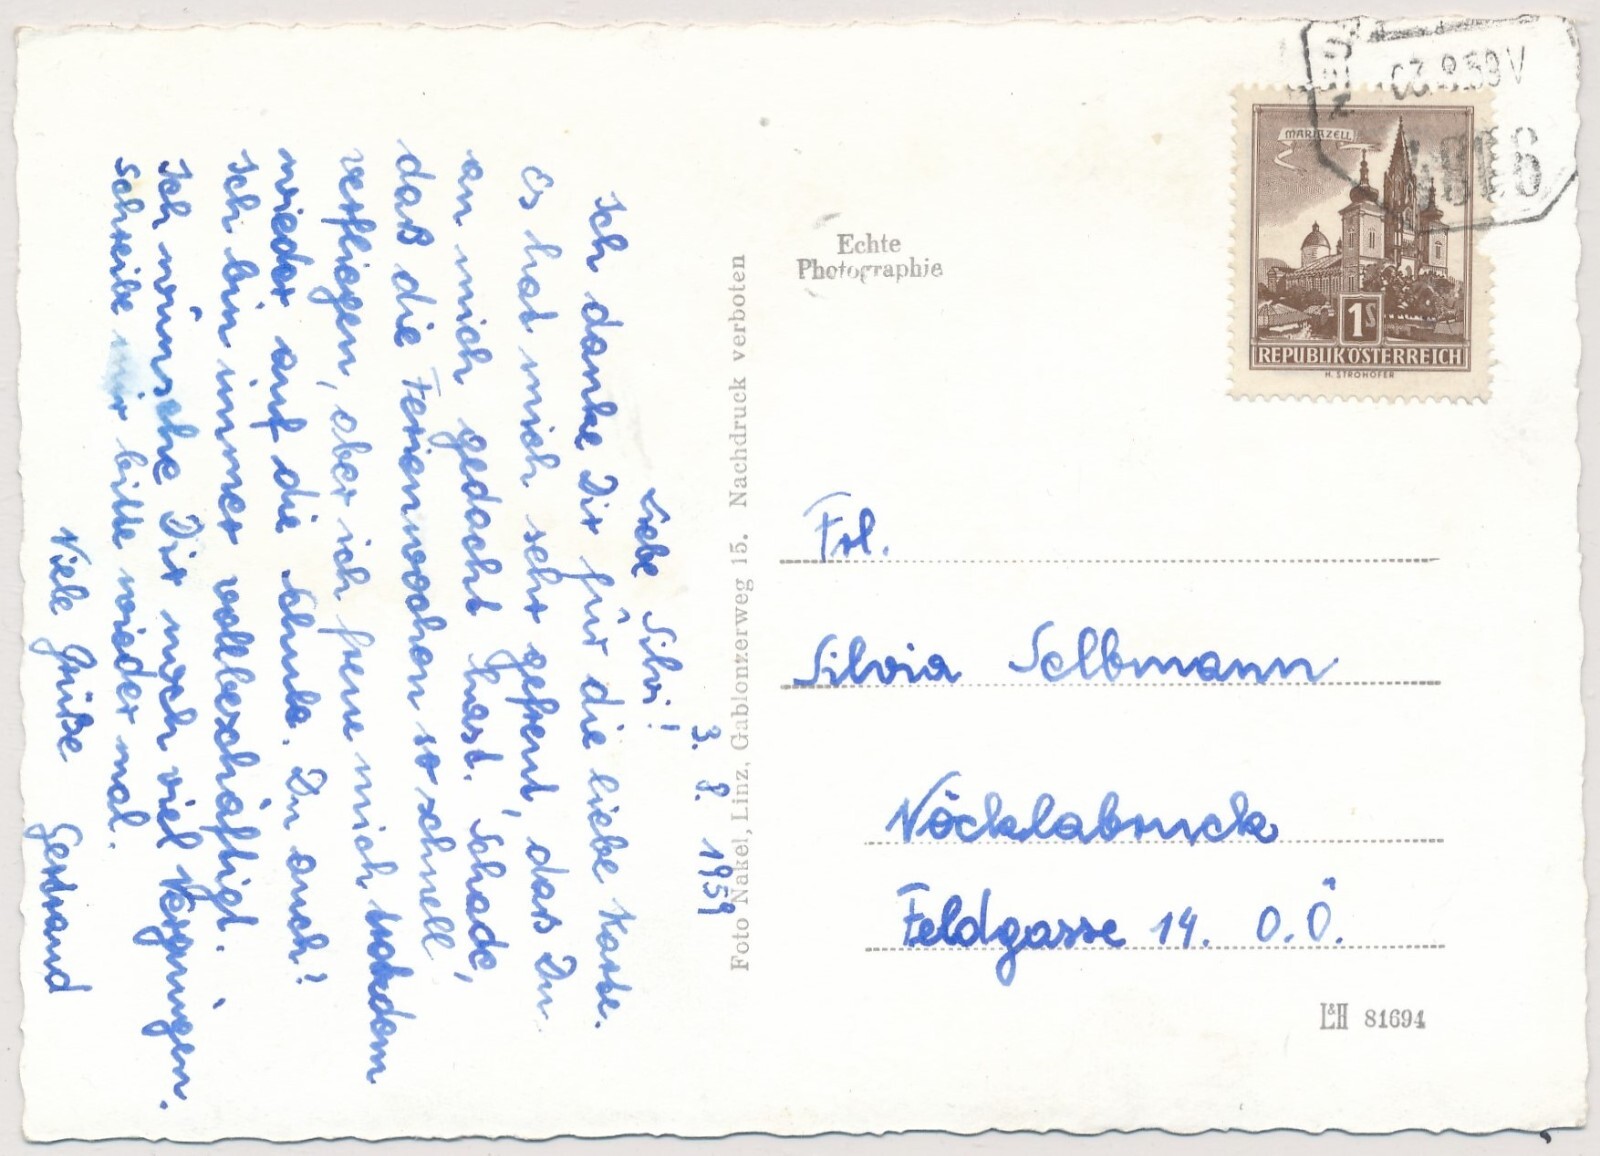 3. 8. 1959
Liebe Silvi!
Ich danke Dir für die liebe Karte.
Es hat mich sehr gefreut, dass Du
an mich gedacht hast. Schade,
daß die Ferienwochen so schnell
verfliegen, aber ich freue mich trotzdem
wieder auf die Schule. Du auch?
Ich bin immer vollbeschäftigt.
Ich wünsche Dir noch viel Vergnügen.
Schreibe mir bitte wieder mal.
Viele Grüße Gertraud
Foto Nakel, Linz, Gablonzerweg 15. Nachdruck verboten
Echte
Photographie
MARIAZELL
1S
REPUBLIK ÖSTERREICH
H. STROHOFER
Frl.
Silvia Selbmann
Vöcklabruck
Feldgasse 14. O.Ö.
L&H 81694